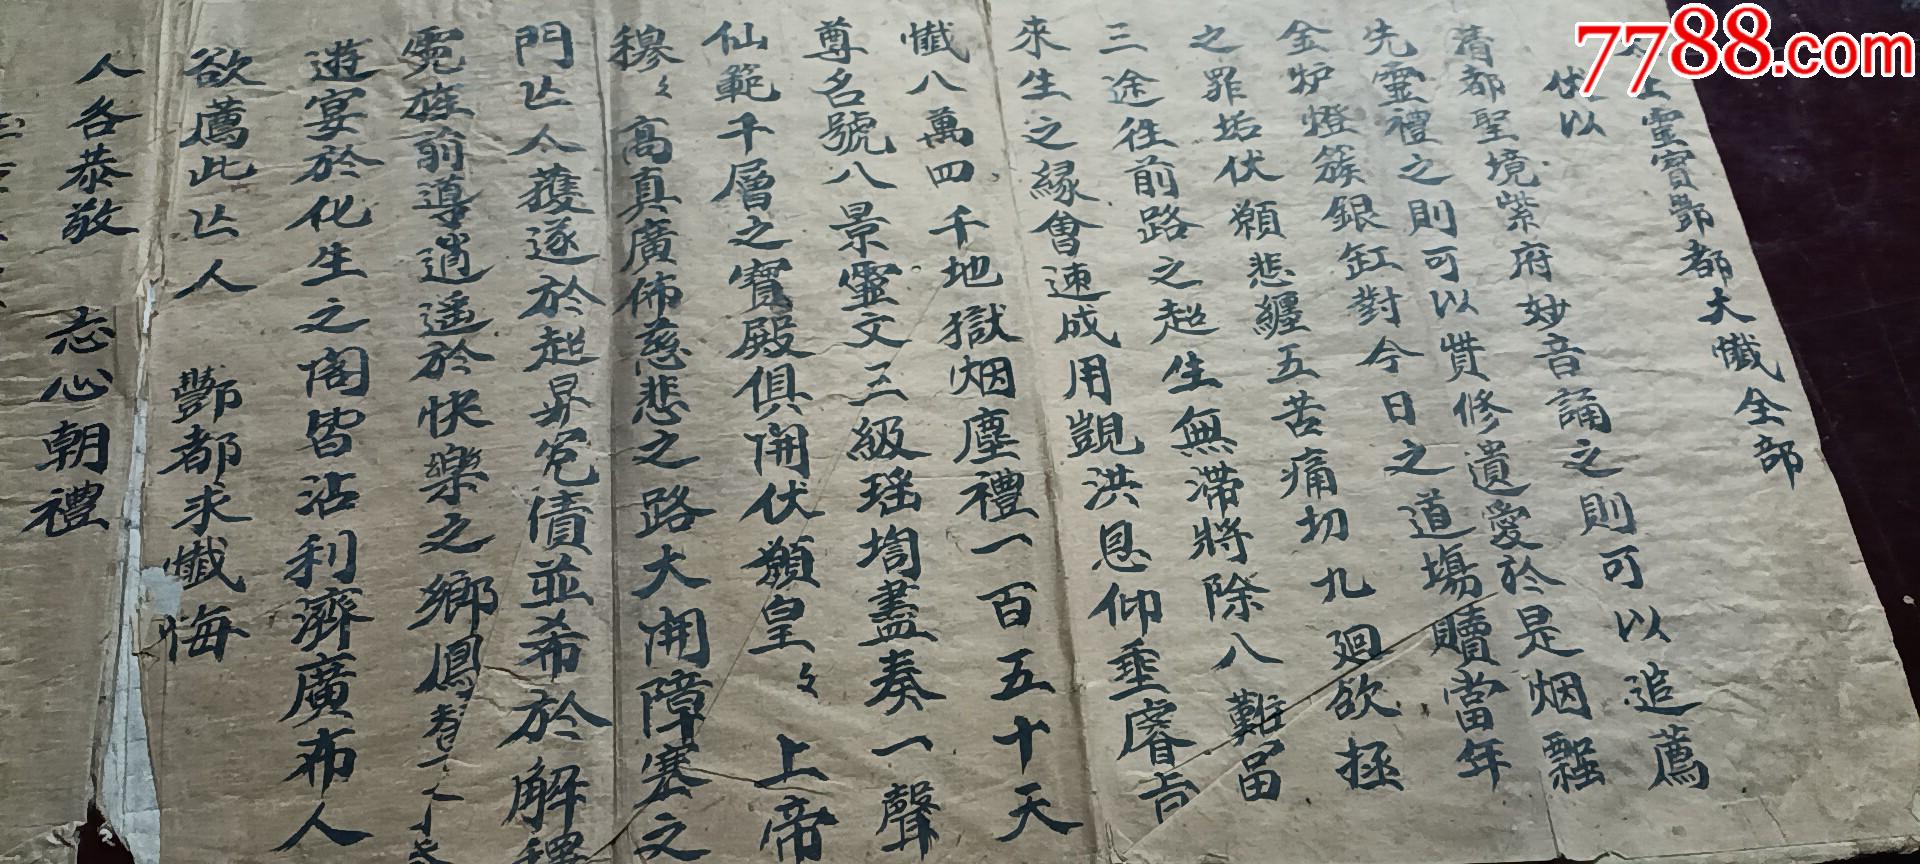 7788.com
上靈寶酆都大懺全部
伏以
清都聖境紫府妙音誦之則可以追薦
先靈禮之則可以賛修遺愛於是烟飄
金炉燈簇銀缸對今日之道場贖當年
之罪垢伏願悲纏五苦痛切九廻欲拯
三途徃前路之超生無滯將除八難畱
來生之緣會速成用覬洪恩仰垂睿㫖
懺八萬四千地獄烟塵禮一百五十天
尊名號八景靈文三級瑶堦盡奏一聲
仙範千層之寶殿俱開伏願皇〻上帝
穆〻高真廣佈慈悲之路大開障塞之
門亾人獲遂於超昇冤債並希於解釋
霓旌前導逍遥於快樂之鄉鳳
遊宴於化生之閣皆沾利濟廣布人
欲薦此亾人 酆都求懺悔
人各恭敬 志心朝禮